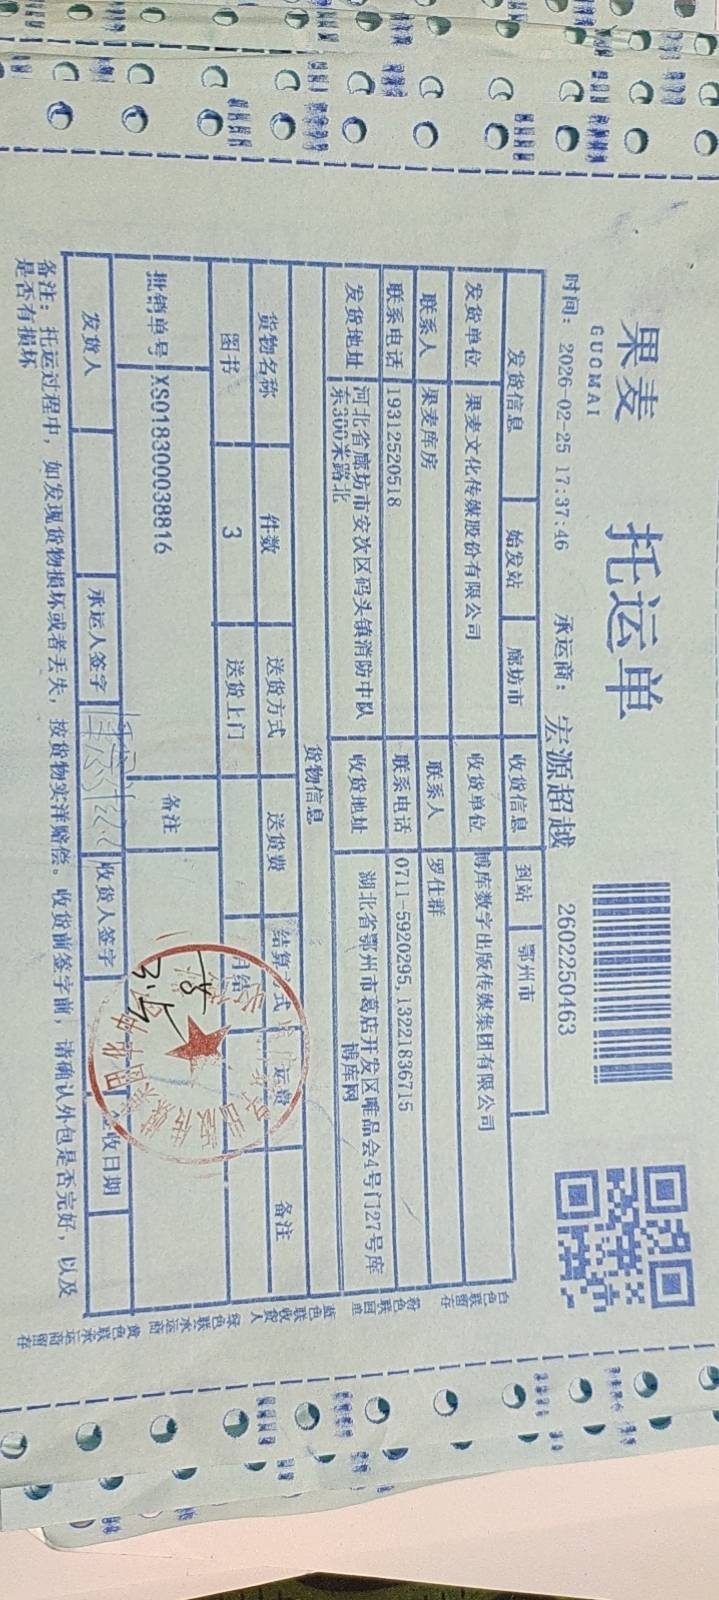 果麦 托运单
GUOMAI
时间: 2026-02-25 17:37:46 承运商: 宏源超越 2602250463
发货信息 始发站 廊坊市 收货信息 到站 鄂州市
发货单位 果麦文化传媒股份有限公司 收货单位 博库数字出版传媒集团有限公司
联系人 果麦库房 联系人 罗仕群
联系电话 19312520518 联系电话 0711-5920295,13221836715
发货地址 河北省廊坊市安次区码头镇消防中队
东300米路北 收货地址 湖北省鄂州市葛店开发区唯品会4号门27号库
博库网
货物信息
货物名称 件数 送货方式 送货费 结算方式 运费 备注
图书 3 送货上门 月结
批销单号 XS018300038816 备注
发货人 承运人签字 收货人签字 签收日期
备注: 托运过程中, 如发现货物损坏或者丢失, 按货物实洋赔偿。收货前签字前, 请确认外包是否完好, 以及
是否有损坏
白色联留存
粉色联回单
蓝色联收货人
绿色联承运商
黄色联承运商留存
3.5